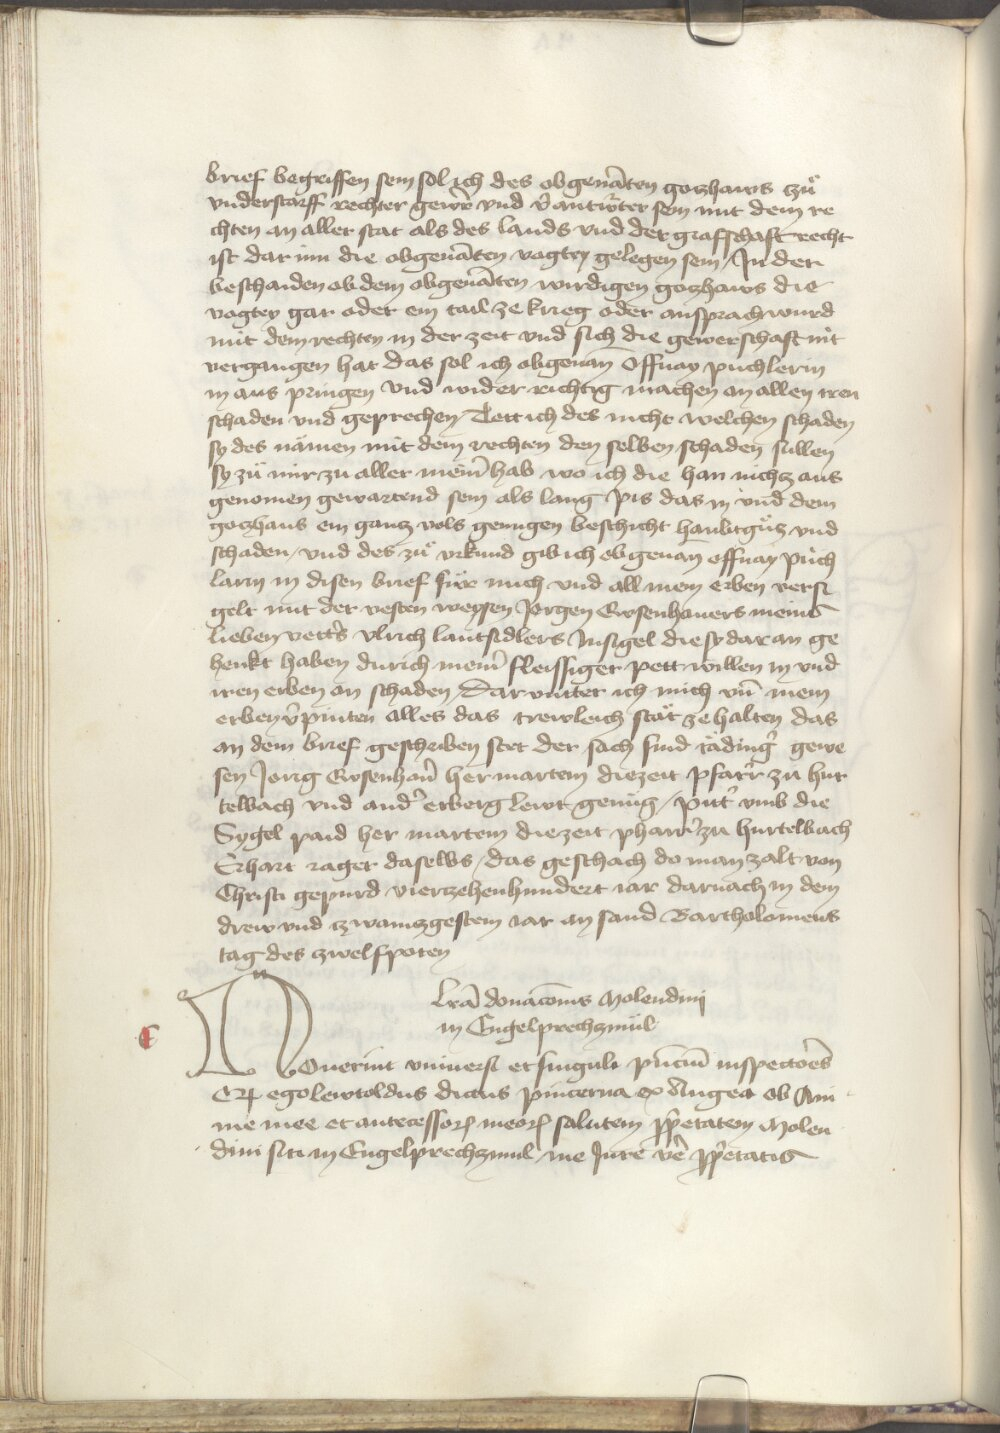 brief begriffen sein sol ich des obgenāten gozhaws zů
vnderstarff rechter gewer vnd v̄antwrter sein mit dem re
chten an aller stat als des lands vnd der grafschaft recht
ist dar inn die obgenāten vogtey gelegen sein / In der
beschaiden ob dem obgenāten wirdigen gozhaws die
vogtey gar oder ein tail ze krieg oder ansprach wurd
mit dem rechten in der zeit vnd sich die gewerschaft nit
vergangen hat das sol ich obgenan Offnay puchlerin
in aus pringen vnd wider richtig machen an allen iren
schaden vnd geprechen / Tett ich des nicht welchen schaden
sy des nämen mit dem rechten den selben schaden sullen
sy zü mir zu aller meiner hab wo ich die han nichz aus
genomen gewartend sein als lang pis das in vnd dem
gozhaus ein ganz vols genugen beschicht haubtgůz vnd
schaden / vnd des zů vrkund gib ich obgenan offnay půch
larin in disen brief für mich vnd all mein erben versi
gelt mit der vesten weysen Jorgen Grosenhauers meins
lieben vett's vlrich lautsidlers Insigel die sy dar an ge
henkt haben durich mein' fleissiger pett willen in vnd
iren erben an schaden / Dar vnter ich mich vn̄ mein
erben v̄pinten alles das trewleich stät ze halten das
an dem brief geschriben stet der sach sind täding' gewe
sen Jorig Grosenhau' her martein die zeit pfarr' zu hur
telbach vnd and' erberg lewt genüg / pitt' vmb die
Sygel paid her martein die zeit pharr' zu hurtelbach
Erhart rager daselbs / das geschach do man zalt von
Christi gepurd vierzehenhundert iar darnach in dem
drew vnd zwainzgestem iar an sand Bartholomeus
tag des zwelfpoten
Lrā donacōnis Molendini
in Engelprechzmül
NOuerint vniuersi et singuli pn̄ciū inspectores
Qꝫ ego lewtoldus dictus pincerna ex Augea ob Ani
me mee et antecessorꝝ meorꝝ salutem ꝓprietatem Molen
dini siti in Engelprechzmül me Jure ve'e ꝓprietatis